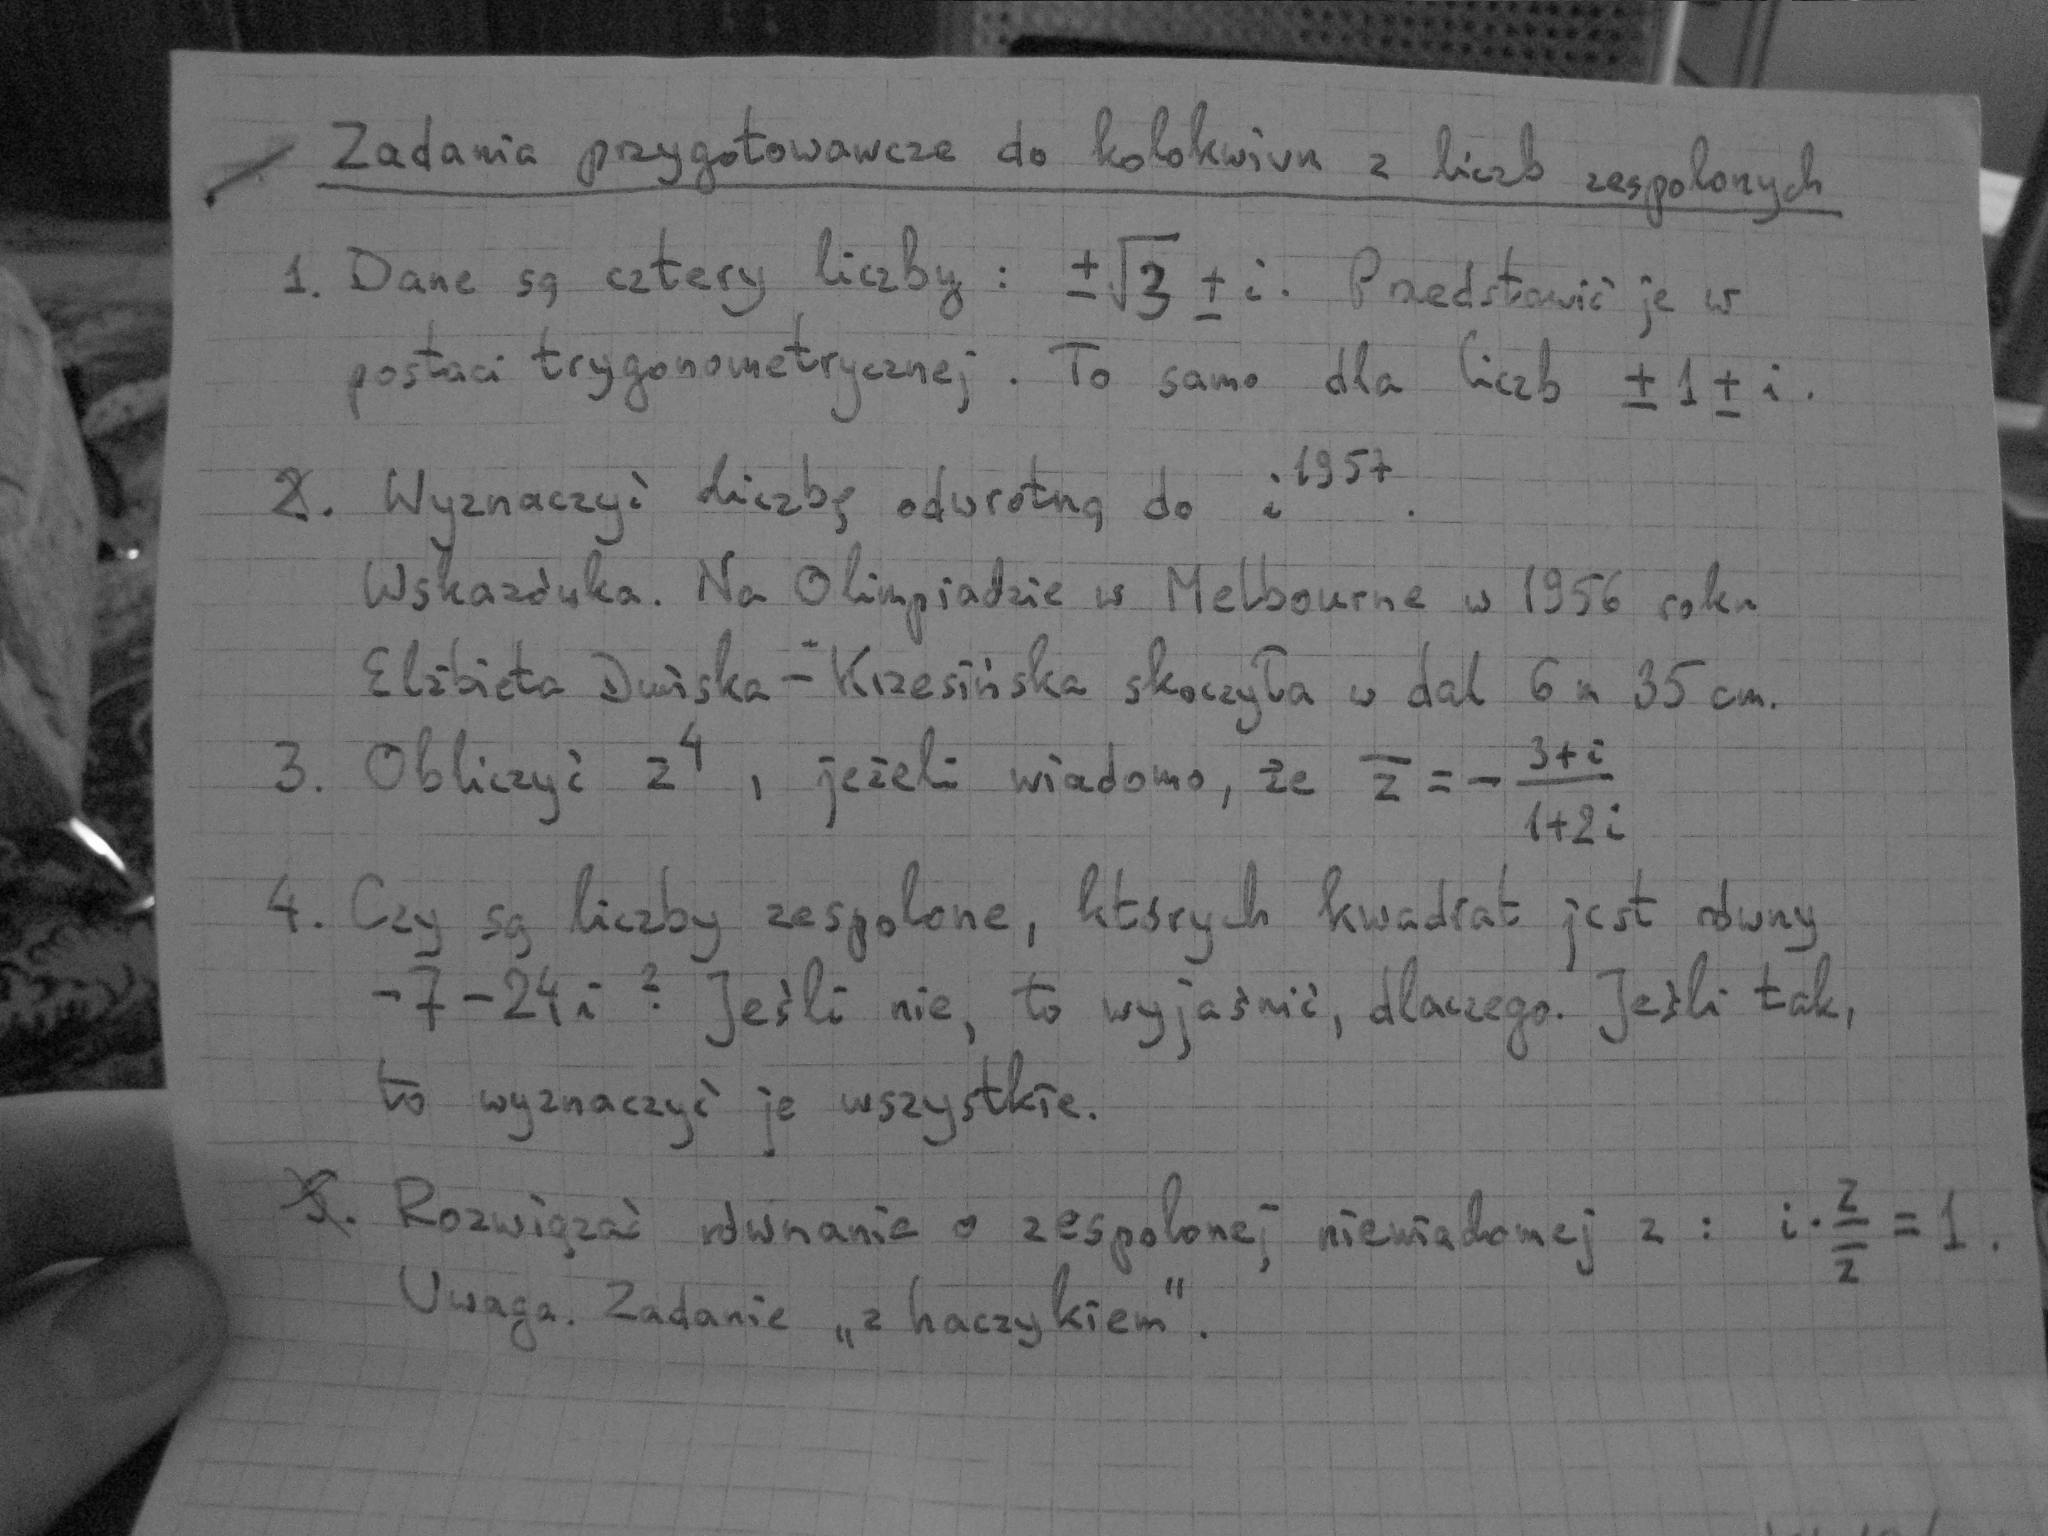 Zadania przygotowawcze do kolokwium z liczb zespolonych
1. Dane są cztery liczby : ±√3 ± i. Przedstawić je w
postaci trygonometrycznej. To samo dla liczb ±1 ± i.
2. Wyznaczyć liczbę odwrotną do i^1957.
Wskazówka. Na Olimpiadzie w Melbourne w 1956 roku
Elżbieta Duńska-Krzesińska skoczyła w dal 6 m 35 cm.
3. Obliczyć z^4, jeżeli wiadomo, że z̅ = - (3+i)/(1+2i)
4. Czy są liczby zespolone, których kwadrat jest równy
-7-24i ? Jeśli nie, to wyjaśnić, dlaczego. Jeśli tak,
to wyznaczyć je wszystkie.
5. Rozwiązać równanie o zespolonej niewiadomej z : i · z/z̅ = 1.
Uwaga. Zadanie „z haczykiem".